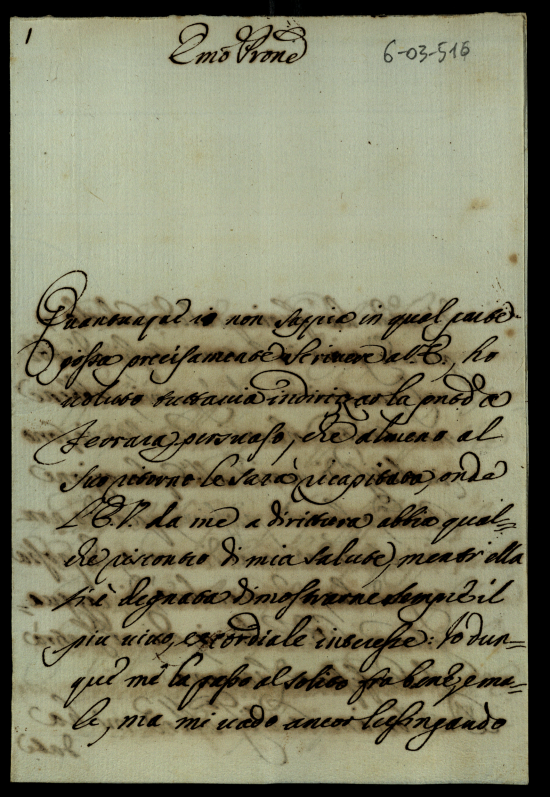 1
Emo Prone
6-03-516
Quantunque io non sappia in qual parte
possa precisamente scrivere all'E., ho
voluto tuttavia indirizzar la pnte a
persuaso, che almeno al
suo ritorno le sarà ricapitata, onde
l'E.V. da me a dirittura abbia qual=
che riscontro di mia salute, mentr'ella
si è degnata di mostrarne sempre il
più vivo, e cordiale interesse: Io dun=
que me la passo al solito fra bene, e ma=
le, ma mi vado ancor lusingando